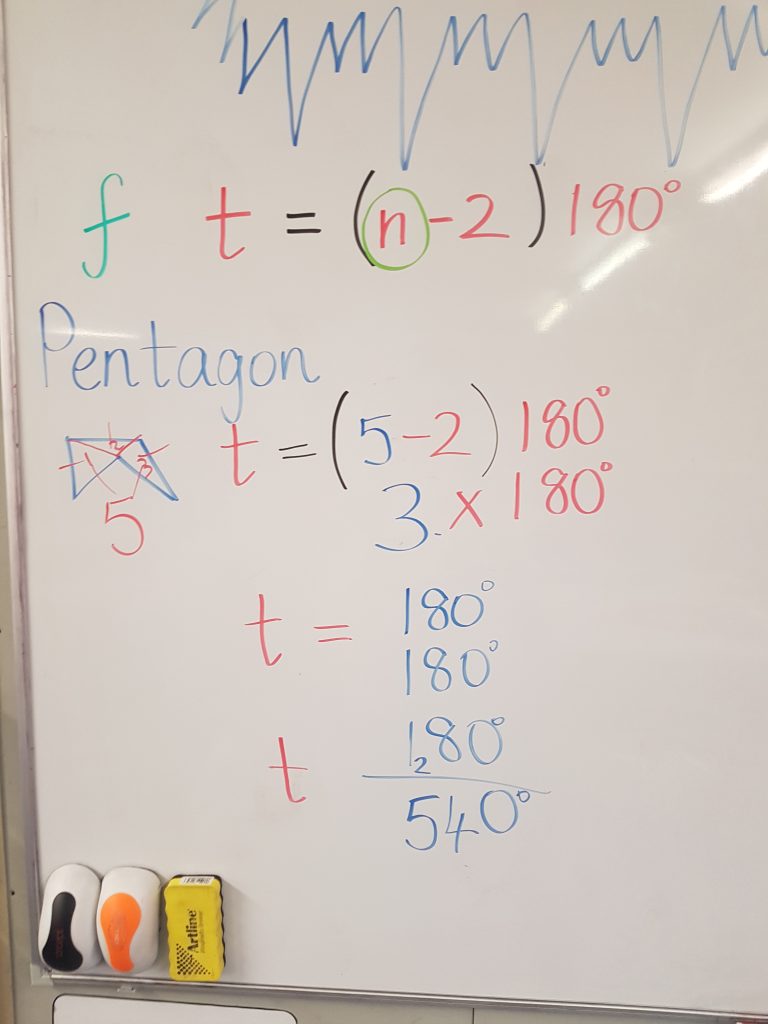 f t = (n-2) 180°
Pentagon
t = (5-2) 180°
3. x 180°
2 3
5
t = 180°
180°
t 1280°
540°
Artline